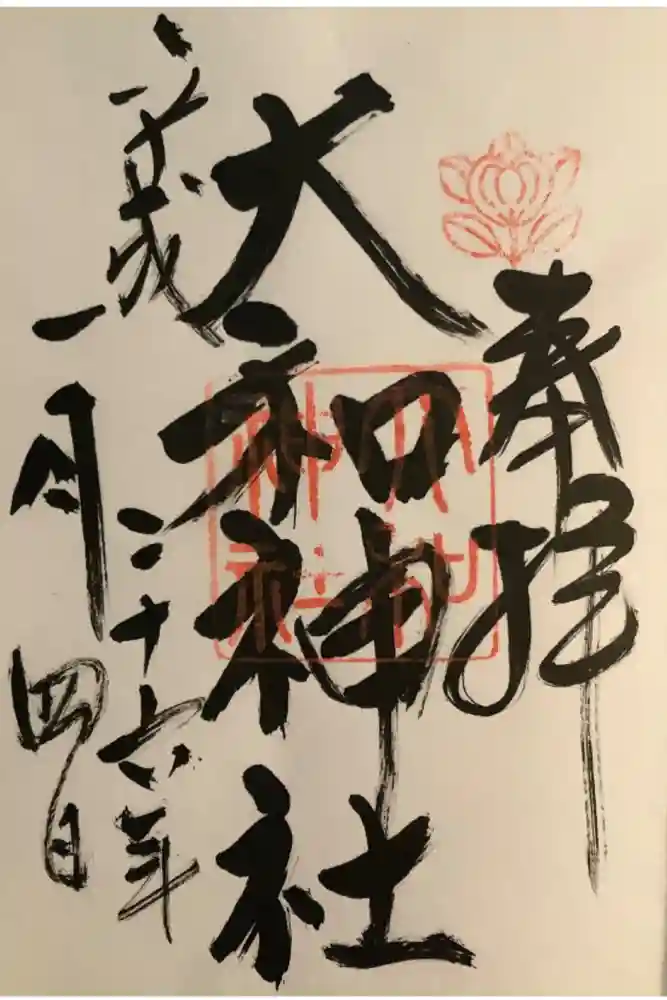 奉拝
大和神社
平成二十六年
一月四日
大和神社